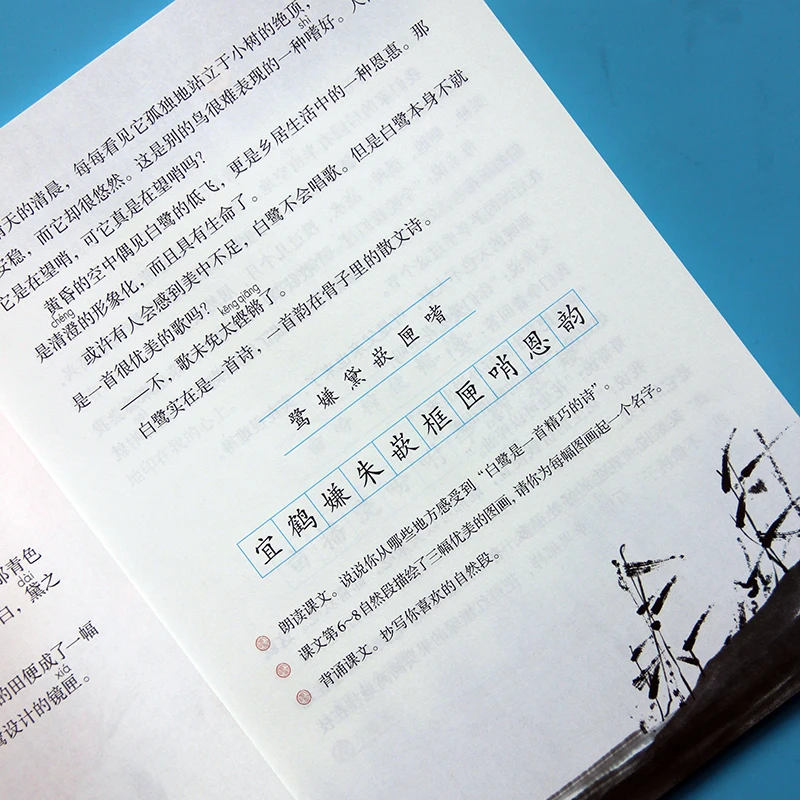 青色
dài
白，黛之
的田便成了一幅
xiá
鹭设计的镜匣。
天的清晨，每每看见它孤独地站立于小树的绝顶，
shì
安稳，而它却很悠然。这是别的鸟很难表现的一种嗜好。人
它是在望哨，可它真是在望哨吗？
黄昏的空中偶见白鹭的低飞，更是乡居生活中的一种恩惠。那
chéng
是清澄的形象化，而且具有生命了。
或许有人会感到美中不足，白鹭不会唱歌。但是白鹭本身不就
是一首很优美的歌吗？
kēng qiāng
——不，歌未免太铿锵了。
白鹭实在是一首诗，一首韵在骨子里的散文诗。
鹭 嫌 黛 嵌 匣 嗜
宜 鹤 嫌 朱 嵌 框 匣 哨 恩 韵
朗读课文。说说你从哪些地方感受到“白鹭是一首精巧的诗”。
课文第6~8自然段描绘了三幅优美的图画，请你为每幅图画起一个名字。
背诵课文。抄写你喜欢的自然段。